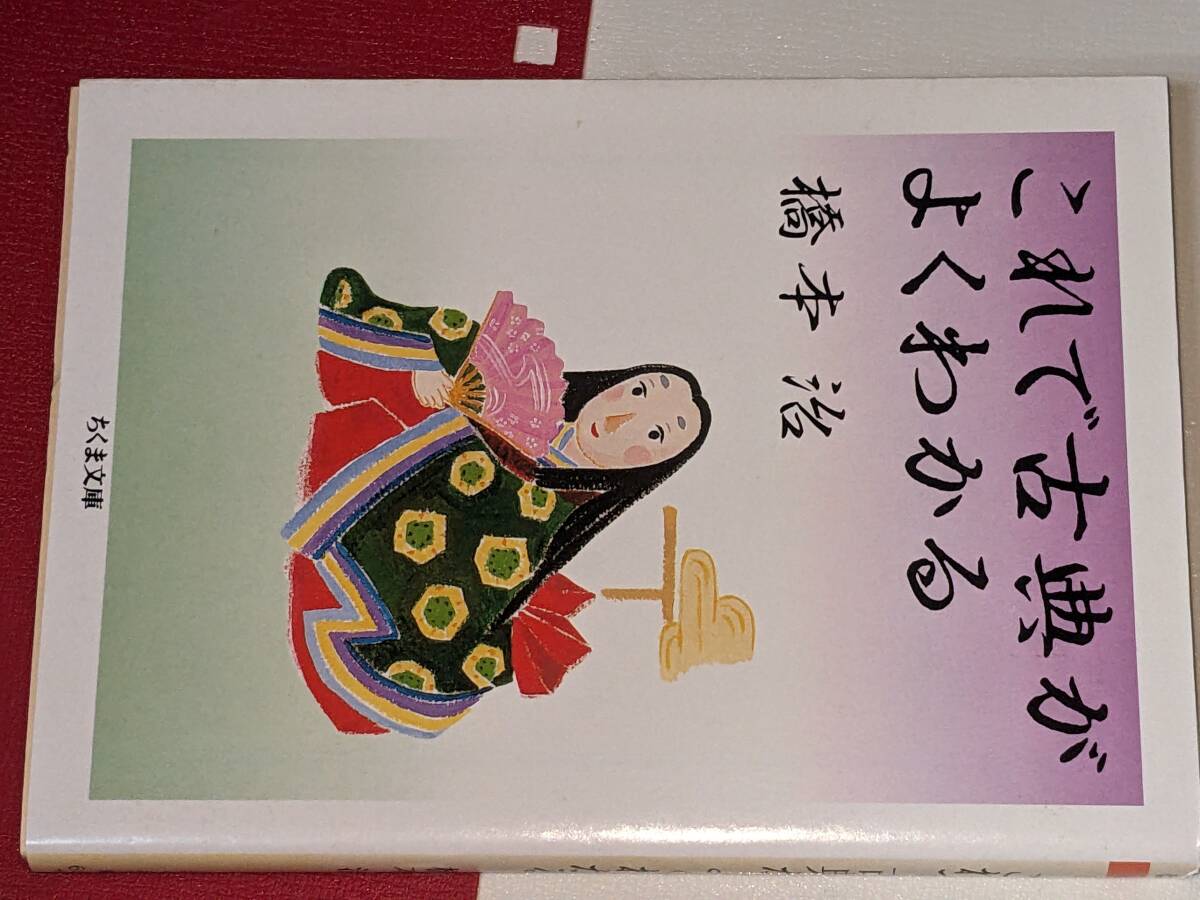 これで古典が
よくわかる
橋本治
ちくま文庫